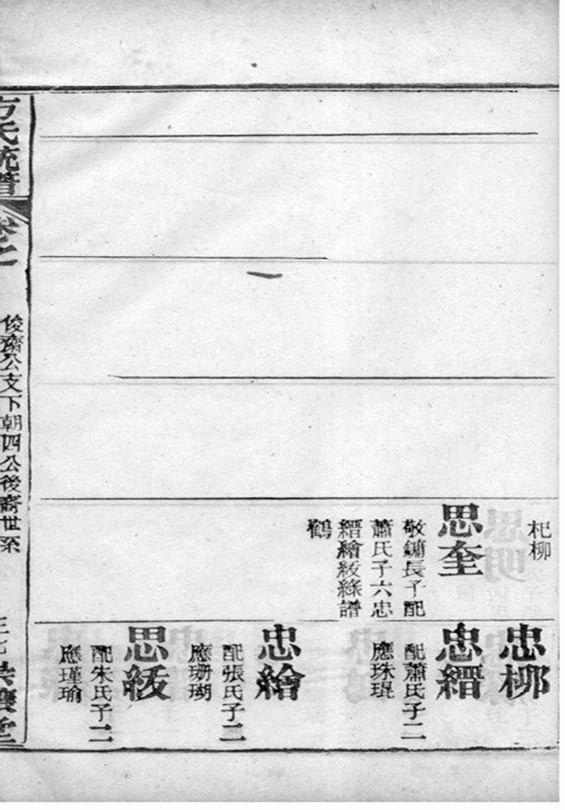 杞柳
思奎
敬鏞長子配
蕭氏子六忠
縉繪紱譜
鶴
忠柳
忠縉
配蕭氏子二
應珠琨
忠繪
配張氏子二
應珊瑚
思紱
配朱氏子二
應瑾瑜
方氏統譜
卷之
俊齋公支下朝四公後裔世系
堂